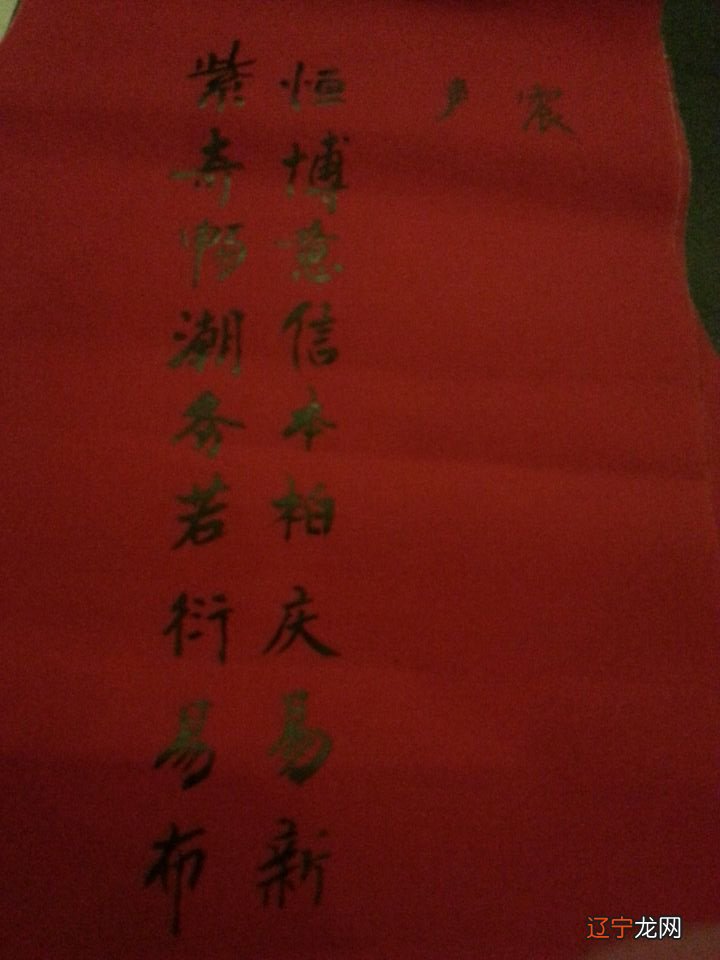 恒博意信本柏庆易新
寿畅潮秀若衍易布
辽宁龙网